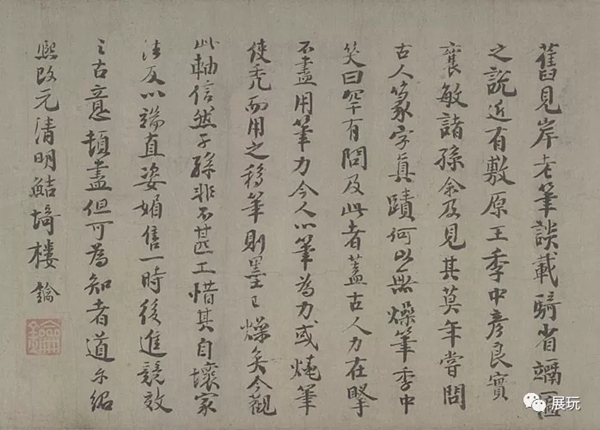 舊見岸老筆談載騎省匾
之說近有敷原王季中彥良實
襄敏諸孫余及見其莫年嘗問
古人篆字真蹟何以無燥筆季中
笑曰罕有問及此者蓋古人力在掔
不盡用筆力今人以筆為力或燒筆
使禿而用之移筆則墨已燥矣今觀
此軸信然子孫非不甚工惜其自壞家
法反以端直姿媚售一時後進競效
之古意頓盡但可為知者道尔紹
熙改元清明鮚埼樓鑰
展玩